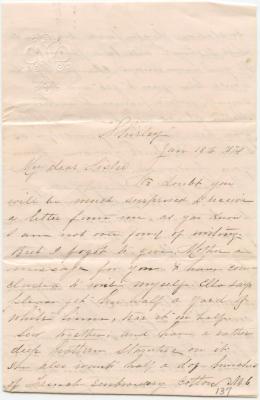 Shirley
Jan 18th 
My dear Sister
No doubt you
will be much surprised to receive
a letter from me, as you know
I am not over fond of writing
But I forgot to give Mother a
message for you & have con-
cluded to write myself. Ella says
please get her half a yard of
white linen, tear it in half
sew together, and have a rather
deep pattern stamped on it.
She also wants half a doz bunches
of French embroidery cotton No 6
137